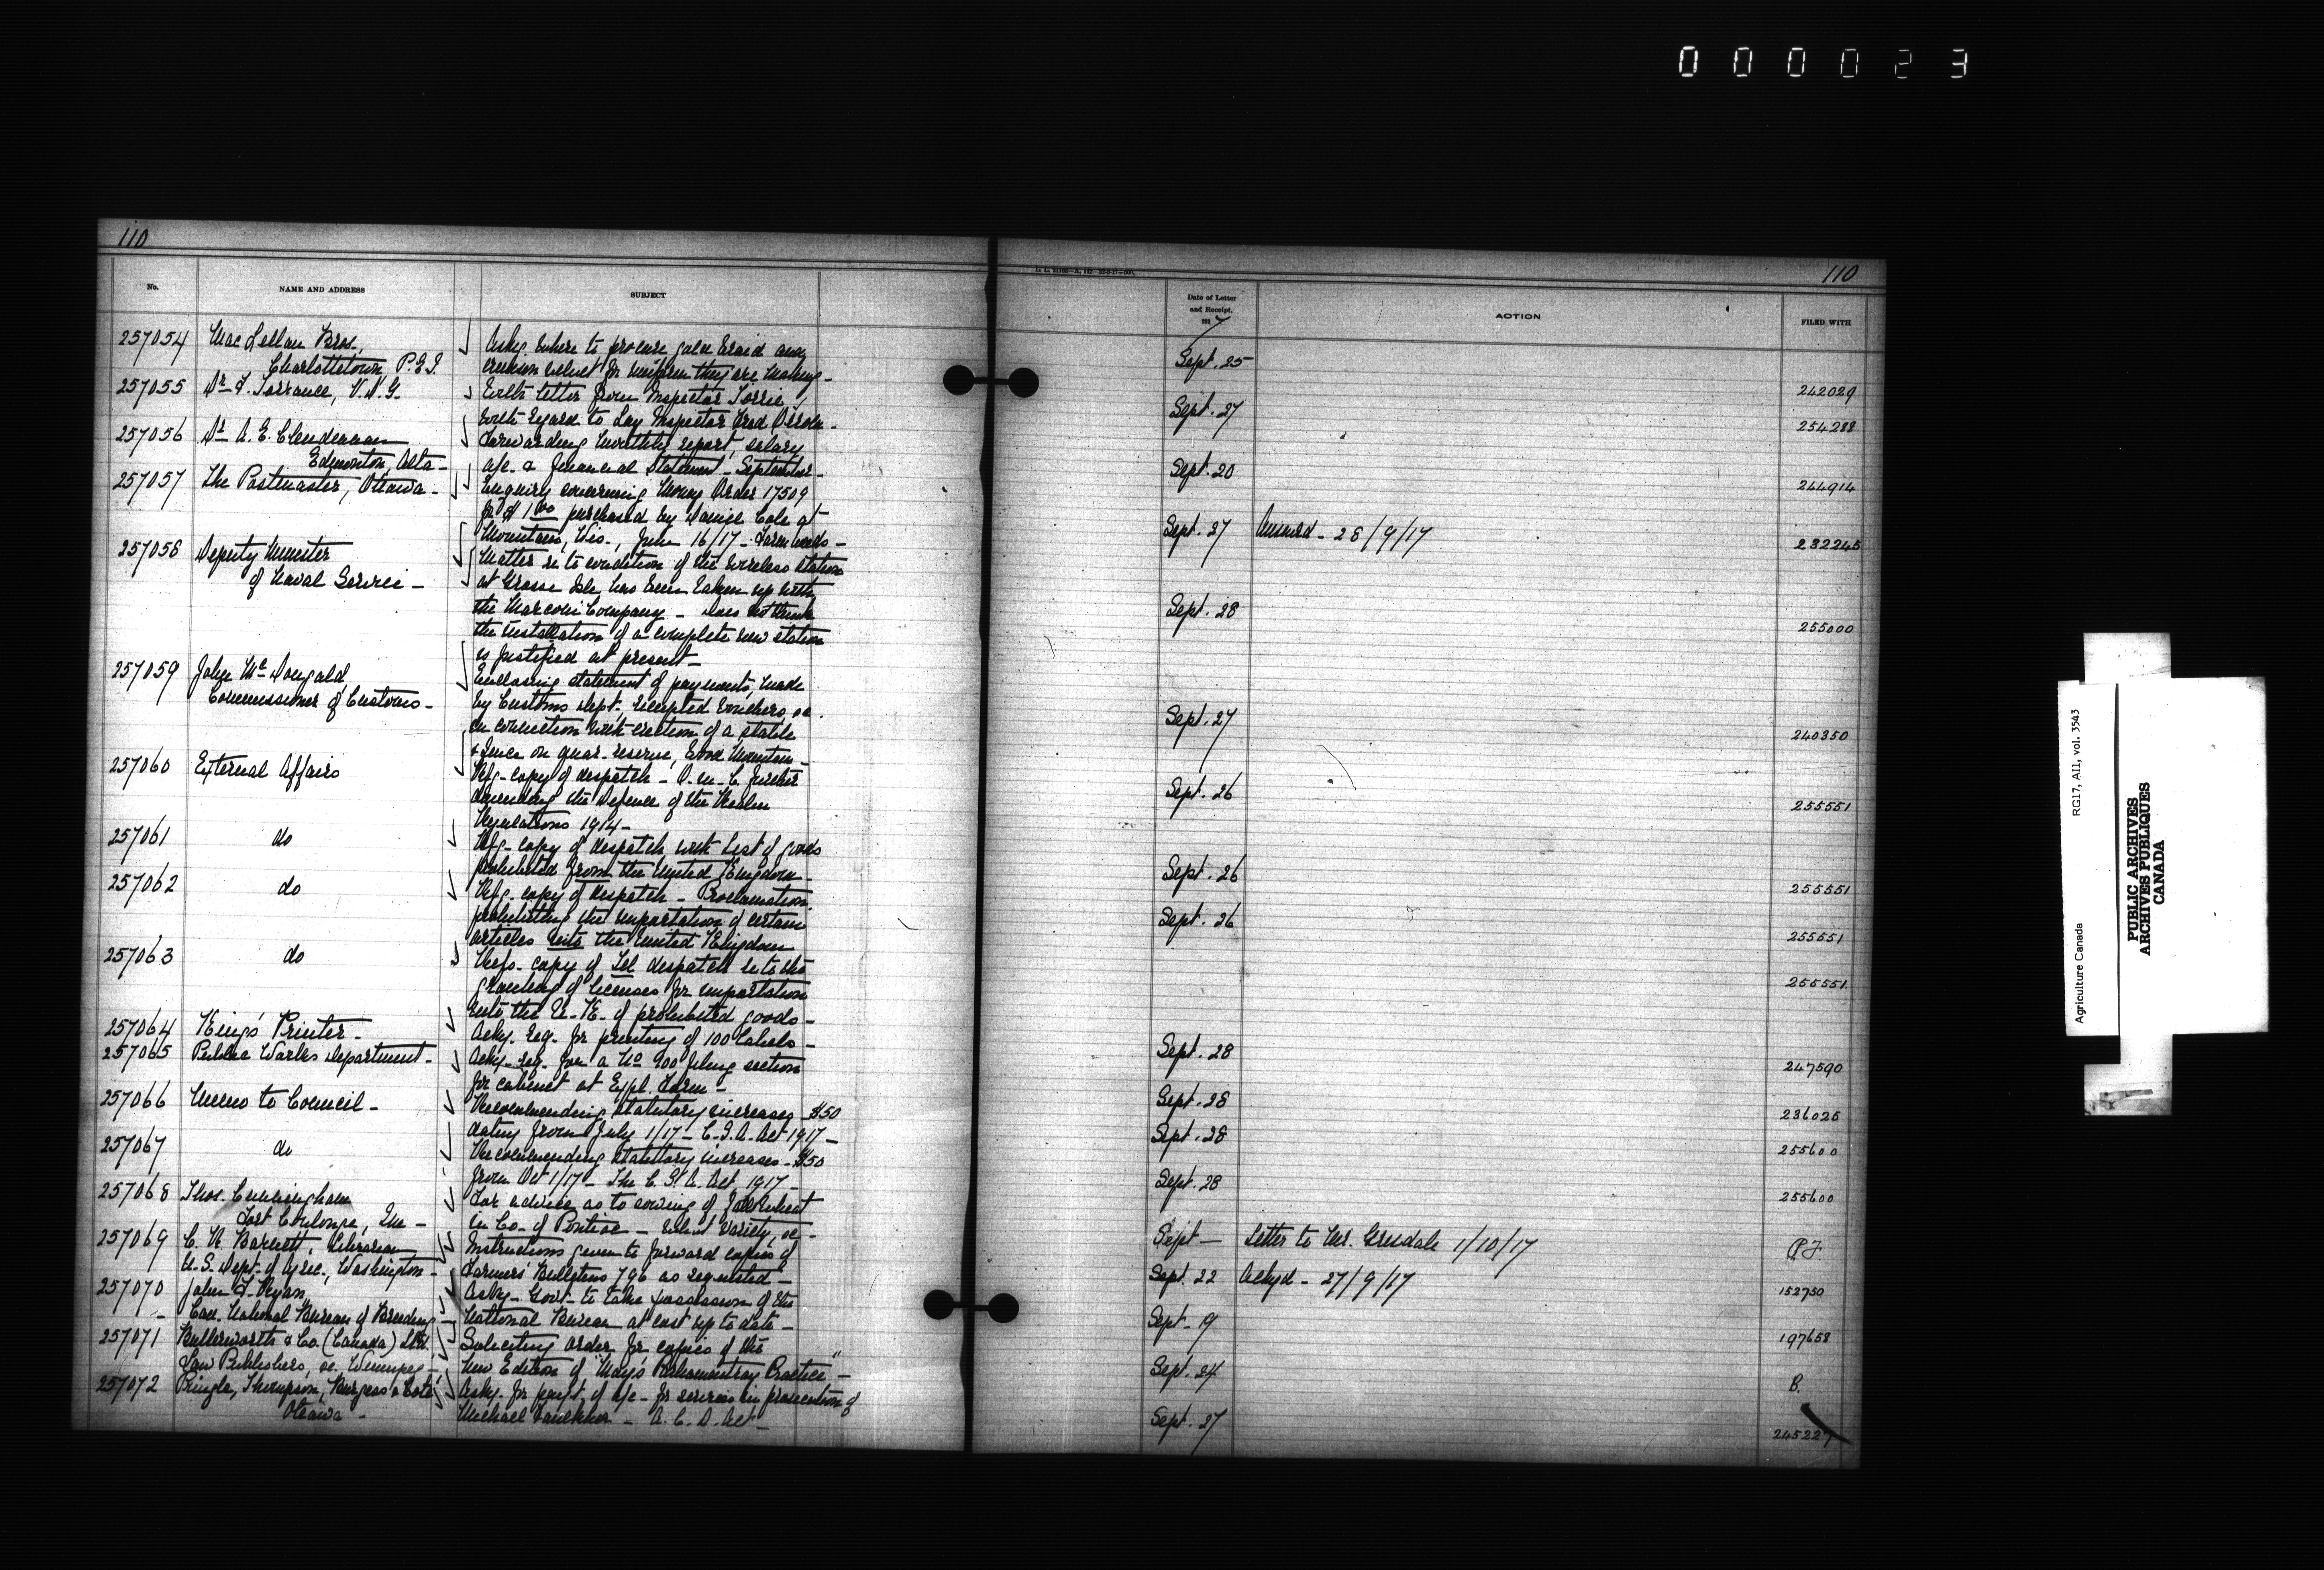 000023
110
No.
NAME AND ADDRESS
SUBJECT
257054 MacLellan Bros.,
Charlottetown, P.E.I.
Askg. where to procure gold braid and
crimson velvet for uniform they are making -
257055 Dr. F. Torrance, V.D.G.
With letter from Inspector Torrie,
with regard to Lay Inspector Fred
257056 Dr. A. E. Clendennan
Edmonton, Alta -
Forwarding monthly report, salary
a/c. & financial statement - September -
257057 The Postmaster, Ottawa -
Enquiry concerning Money Order 17509
for $1.00 purchased by Daniel Cole at
Mountain, Wis., June 16/17 -
257058 Deputy Minister
of Naval Service -
Matter re to condition of the wireless station
at Grosse Isle has been taken up with
the Marconi Company - Does not think
the installation of a complete new station
is justified at present -
257059 John McDougald
Commissioner of Customs -
Enclosing statement of payments, made
by Customs Dept. receipted vouchers &c.
in connection with erection of a stable
& fence on quar. reserve, Wood Mountain -
257060 External Affairs
Refg - copy of despatch - O. in C. further
amending the Defence of the Realm
Regulations 1914 -
257061 do
Refg - copy of despatch with list of goods
prohibited from the United Kingdom -
257062 do
Refg - copy of despatch - Proclamation
prohibiting the importation of certain
articles into the United Kingdom
257063 do
Refg - copy of Tel despatch re to the
granting of licenses for importation
into the U. K. of prohibited goods -
257064 King's Printer -
Ackg. req. for printing of 100 labels -
257065 Public Works Department -
Ackg. req. for a No 900 filing section
for cabinet at Expl. Farm -
257066 Memo to Council -
Recommending statutory increases - $50
dating from July 1/17 - C.S.A. Act 1917 -
257067 do
Recommending statutory increases - $50
from Oct 1/17 - The C.S.A. Act 1917 -
257068 Thos. Cunningham
Fort Coulonge, Que -
For advice as to sowing of fall wheat
in Co. of Pontiac - what variety, &c -
257069 C. R. Barnett, Librarian
U.S. Dept. of Agric., Washington -
Instructions given to forward copies of
Farmers' Bulletins 796 as requested -
257070 John F. Ryan,
Can. National Bureau of Breeding
Askg - Govt - to take possession of the
National Bureau - at cost up to date -
257071 Butterworth & Co. (Canada) Ltd.
Law Publishers, &c. Winnipeg -
Soliciting order for copies of the
new Edition of "May's Parliamentary Practice" -
257072 Pringle, Thompson, Burgess & Coté
Ottawa -
Askg. for payt. of a/c - for services in prosecution of
Michael Faulkner - A. C. D. Act -
110
Date of Letter
and Receipt.
1917
ACTION
FILED WITH
Sept. 25 242029
Sept. 27 254288
Sept. 20 244914
Sept. 27 Answered - 28/9/17 232245
Sept. 28 255000
Sept. 27 240350
Sept. 26 255551
Sept. 26 255551
Sept. 26 255551
255551
Sept. 28 247590
Sept. 28 236025
Sept. 28 255600
Sept. 28 255600
Sept - Letter to Mr. Grisdale 1/10/17 P.F
Sept. 22 Ackgd - 27/9/17 152750
Sept. 19 197658
Sept. 24 B.
Sept. 27 245227
Agriculture Canada RG17, AI1, vol. 3543
PUBLIC ARCHIVES
ARCHIVES PUBLIQUES
CANADA